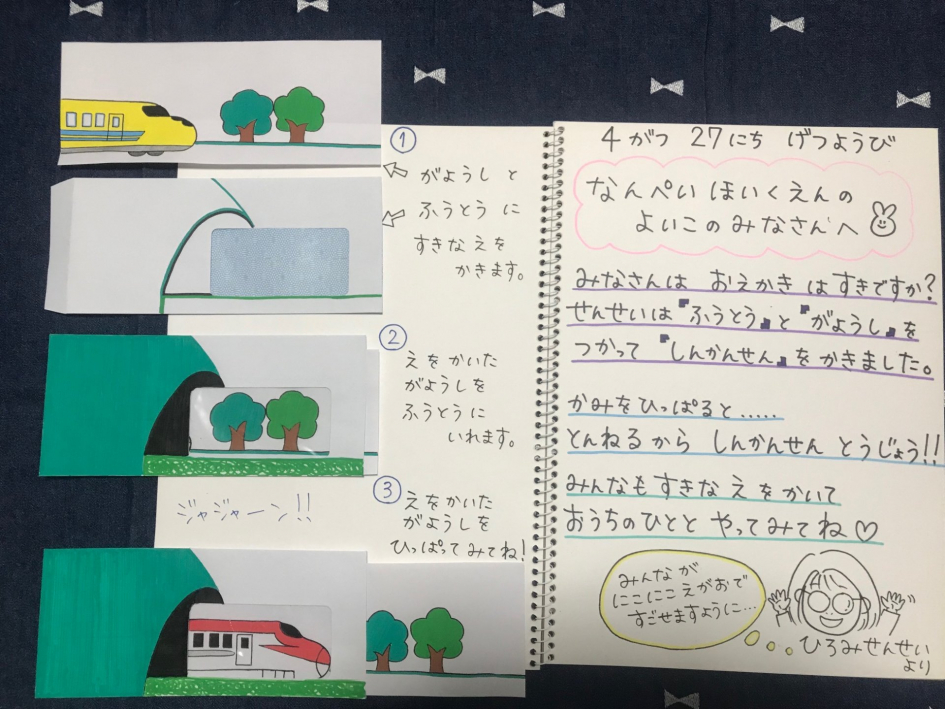 ①
がようしと
ふうとうに
すきなえを
かきます。
②
えをかいた
がようしを
ふうとうに
いれます。
③
えをかいた
がようしを
ひっぱってみてね!
ジャジャーン!!
4がつ 27にち げつようび
なんぺいほいくえんの
よいこのみなさんへ
みなさんは おえかきはすきですか?
せんせいは『ふうとう』と『がようし』を
つかって『しんかんせん』をかきました。
かみをひっぱると.....
とんねるから しんかんせん とうじょう!!
みんなもすきなえをかいて
おうちのひとと やってみてね♡
みんなが
にこにこえがおで
すごせますように…
ひろみせんせい
より